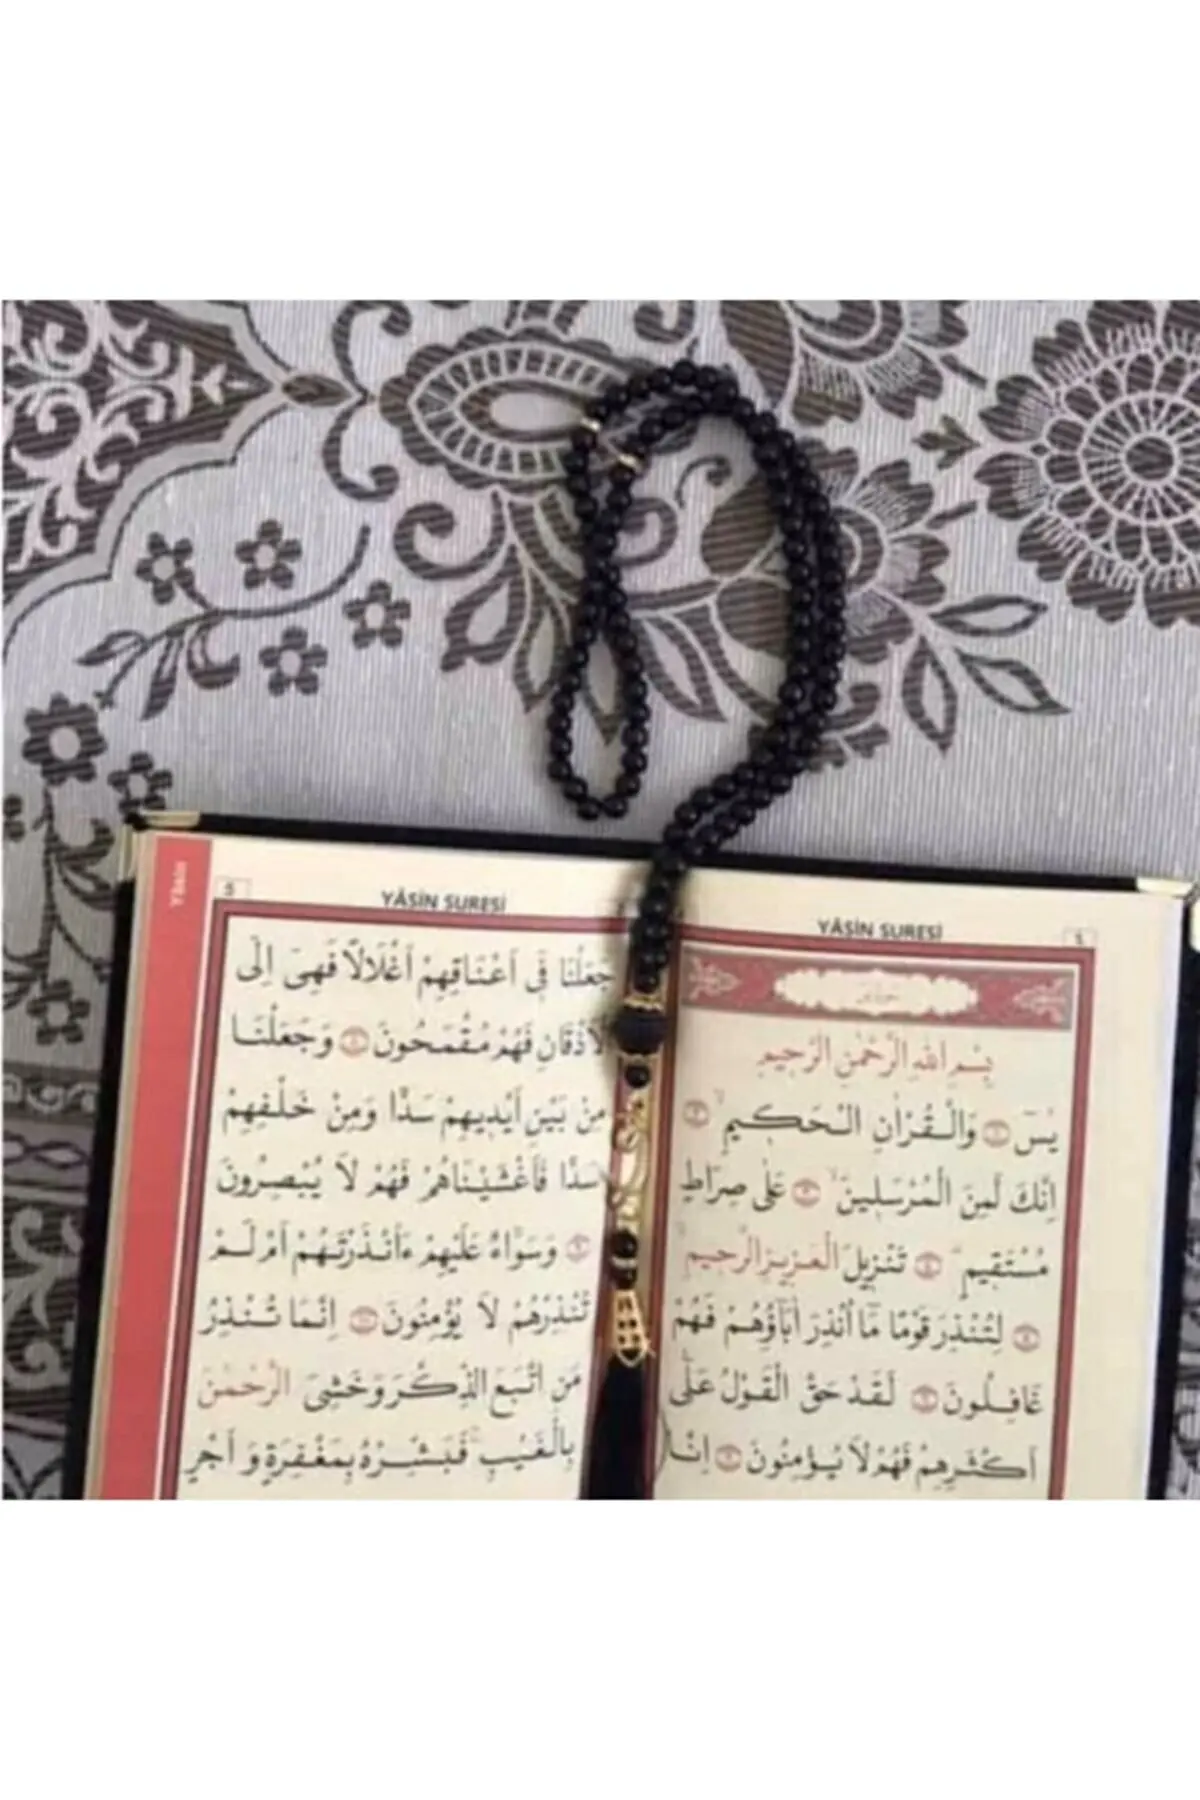 YÂSİN SURESİ
بِسْمِ اللّٰهِ الرَّحْمٰنِ الرَّحِيمِ
يٰسٓ ۝ وَالْـقُرْاٰنِ الْـحَكِـيمِۙ ۝
اِنَّكَ لَمِنَ الْمُرْسَلِينَۙ ۝ عَلٰى صِرَاطٍ
مُسْتَقِيمٍۜ ۝ تَنْزِيلَ الْعَزِيزِ الرَّحِيمِۙ
۝ لِتُنْذِرَ قَوْمًا مَٓا اُنْذِرَ اٰبَٓاؤُ۬هُمْ فَهُمْ
غَافِلُونَ ۝ لَقَدْ حَقَّ الْقَوْلُ عَلٰٓى
اَكْثَرِهِمْ فَهُمْ لَا يُؤْمِنُونَ ۝ اِنَّا
Yâsin
5
YÂSİN SURESİ
جَعَلْنَا فٓى اَعْنَاقِهِمْ اَغْلَالًا فَهِىَ اِلَى
الْاَذْقَانِ فَهُمْ مُقْمَحُونَ ۝ وَجَعَلْنَا
مِنْ بَيْنِ اَيْدِيهِمْ سَدًّا وَمِنْ خَلْفِهِمْ
سَدًّا فَاَغْشَيْنَاهُمْ فَهُمْ لَا يُبْصِرُونَ
۝ وَسَوَٓاءٌ عَلَيْهِمْ ءَاَنْذَرْتَهُمْ اَمْ لَمْ
تُنْذِرْهُمْ لَا يُؤْمِنُونَ ۝ اِنَّمَا تُنْذِرُ
مَنِ اتَّبَعَ الذِّكْرَ وَخَشِىَ الرَّحْمٰنَ
بِالْغَيْبِۚ فَبَشِّرْهُ بِمَغْفِرَةٍ وَاَجْرٍ